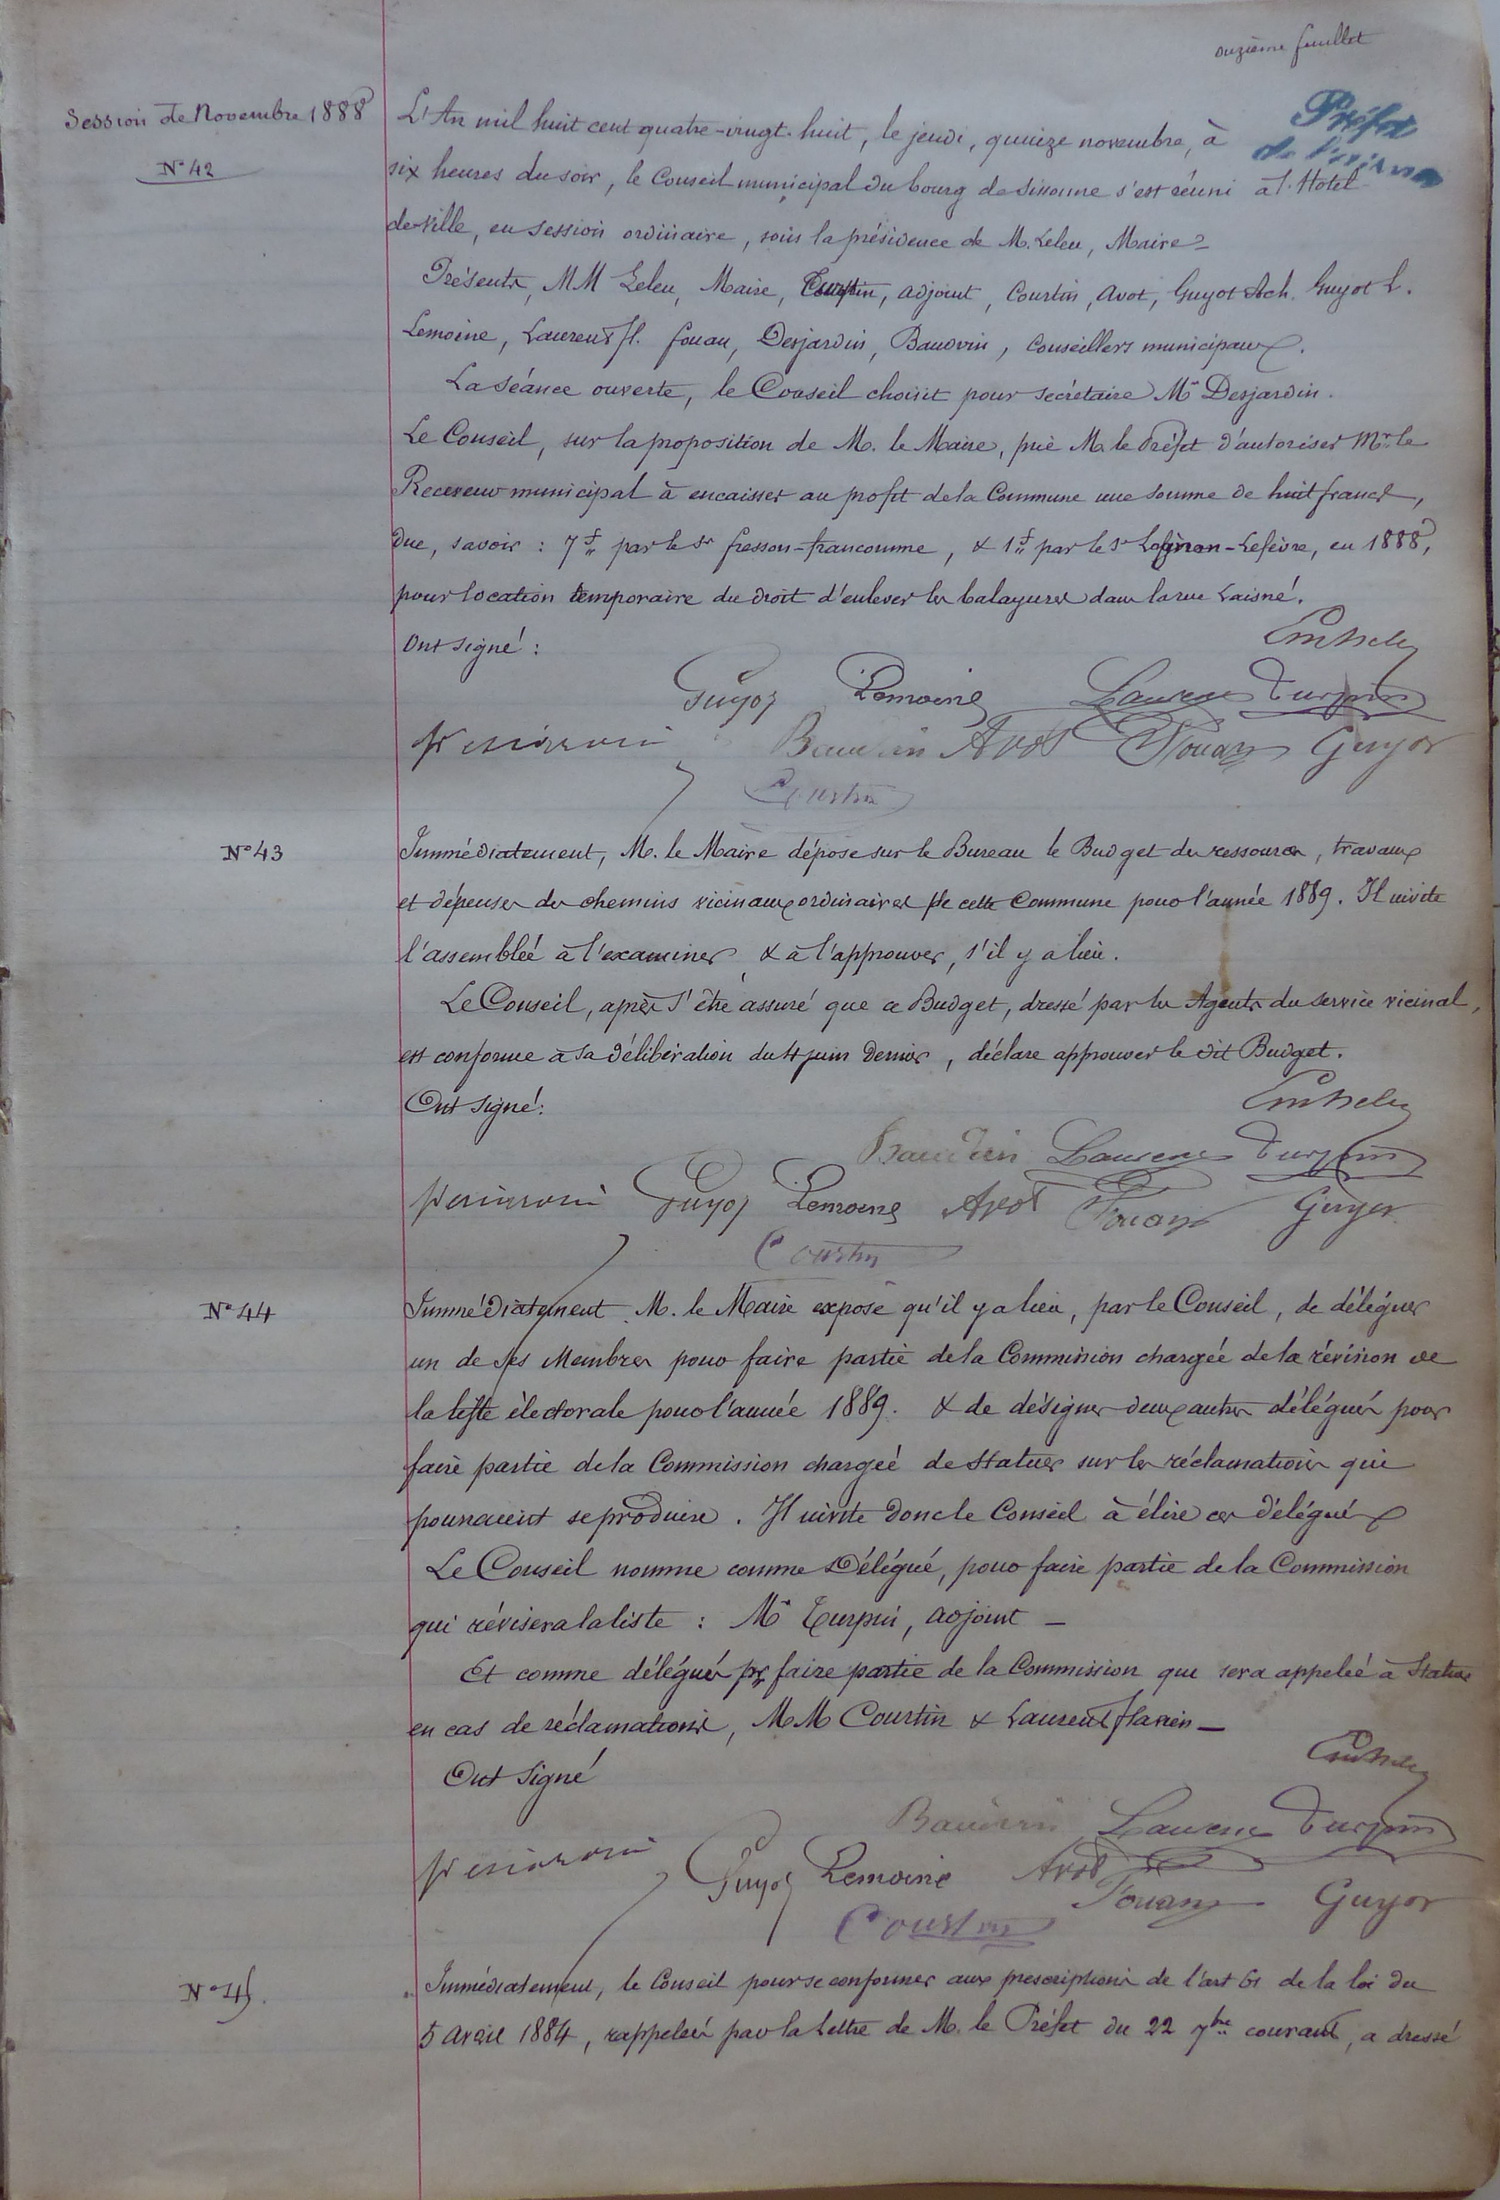 onzième feuillet
Préfet
de l'Aisne
Session de Novembre 1888
N° 42
L'An mil huit cent quatre-vingt-huit, le jeudi, quinze novembre, à
six heures du soir, le Conseil municipal du bourg de Sissonne s'est réuni à l'Hôtel
de Ville, en session ordinaire, sous la présidence de M. Leleu, Maire -
Présents, MM Leleu, Maire, Turpin, adjoint, Courtin, Avot, Guyot Ach. Guyot L.
Lemoine, Laurent fl. fouan, Desjardin, Baudoin, Conseillers municipaux.
La séance ouverte, le Conseil choisit pour secrétaire Mr Desjardin.
Le Conseil, sur la proposition de M. le Maire, prie M. le Préfet d'autoriser Mr. le
Receveur municipal à encaisser au profit de la Commune une somme de huit francs,
due, savoir : 7f " par le Sr fresson-francomme, & 1f " par le Sr -Lefèvre, en 1888,
pour location temporaire du droit d'enlever les balayures dans la rue Laisné.
Ont signé :
Guyot Lemoine Laurent Turpin
Desjardin Baudoin Avot Fouan Guyot
Courtin
N° 43
Immédiatement, M. le Maire dépose sur le Bureau le Budget des ressources, travaux
et dépenses des chemins vicinaux ordinaires de cette Commune pour l'année 1889. Il invite
l'assemblée à l'examiner, & à l'approuver, s'il y a lieu.
Le Conseil, après s'être assuré que ce Budget, dressé par les Agents du service vicinal,
est conforme à sa délibération du 4 juin dernier, déclare approuver le dit Budget.
Ont signé :
Baudoin Laurent Turpin
Desjardin Guyot Lemoine Avot Fouan Guyot
Courtin
N° 44
Immédiatement, M. le Maire expose qu'il y a lieu, par le Conseil, de déléguer
un de ses Membres pour faire partie de la Commission chargée de la révision de
la liste électorale pour l'année 1889. & de désigner deux autres délégués pour
faire partie de la Commission chargée de statuer sur les réclamations qui
pourraient se produire. Il invite donc le Conseil à élire ces délégués
Le Conseil nomme comme Délégué, pour faire partie de la Commission
qui révisera la liste : Mr Turpin, adjoint -
Et comme délégués pr faire partie de la Commission qui sera appelée à Statuer
en cas de réclamations, MM Courtin & Laurent flavien -
Ont signé
Baudoin Laurent Turpin
Desjardin Guyot Lemoine Avot Fouan Guyot
Courtin
N° 45.
Immédiatement, le Conseil pour se conformer aux prescriptions de l'art 61 de la loi du
5 avril 1884, rappelées par la lettre de M. le Préfet du 22 7bre courant, a dressé